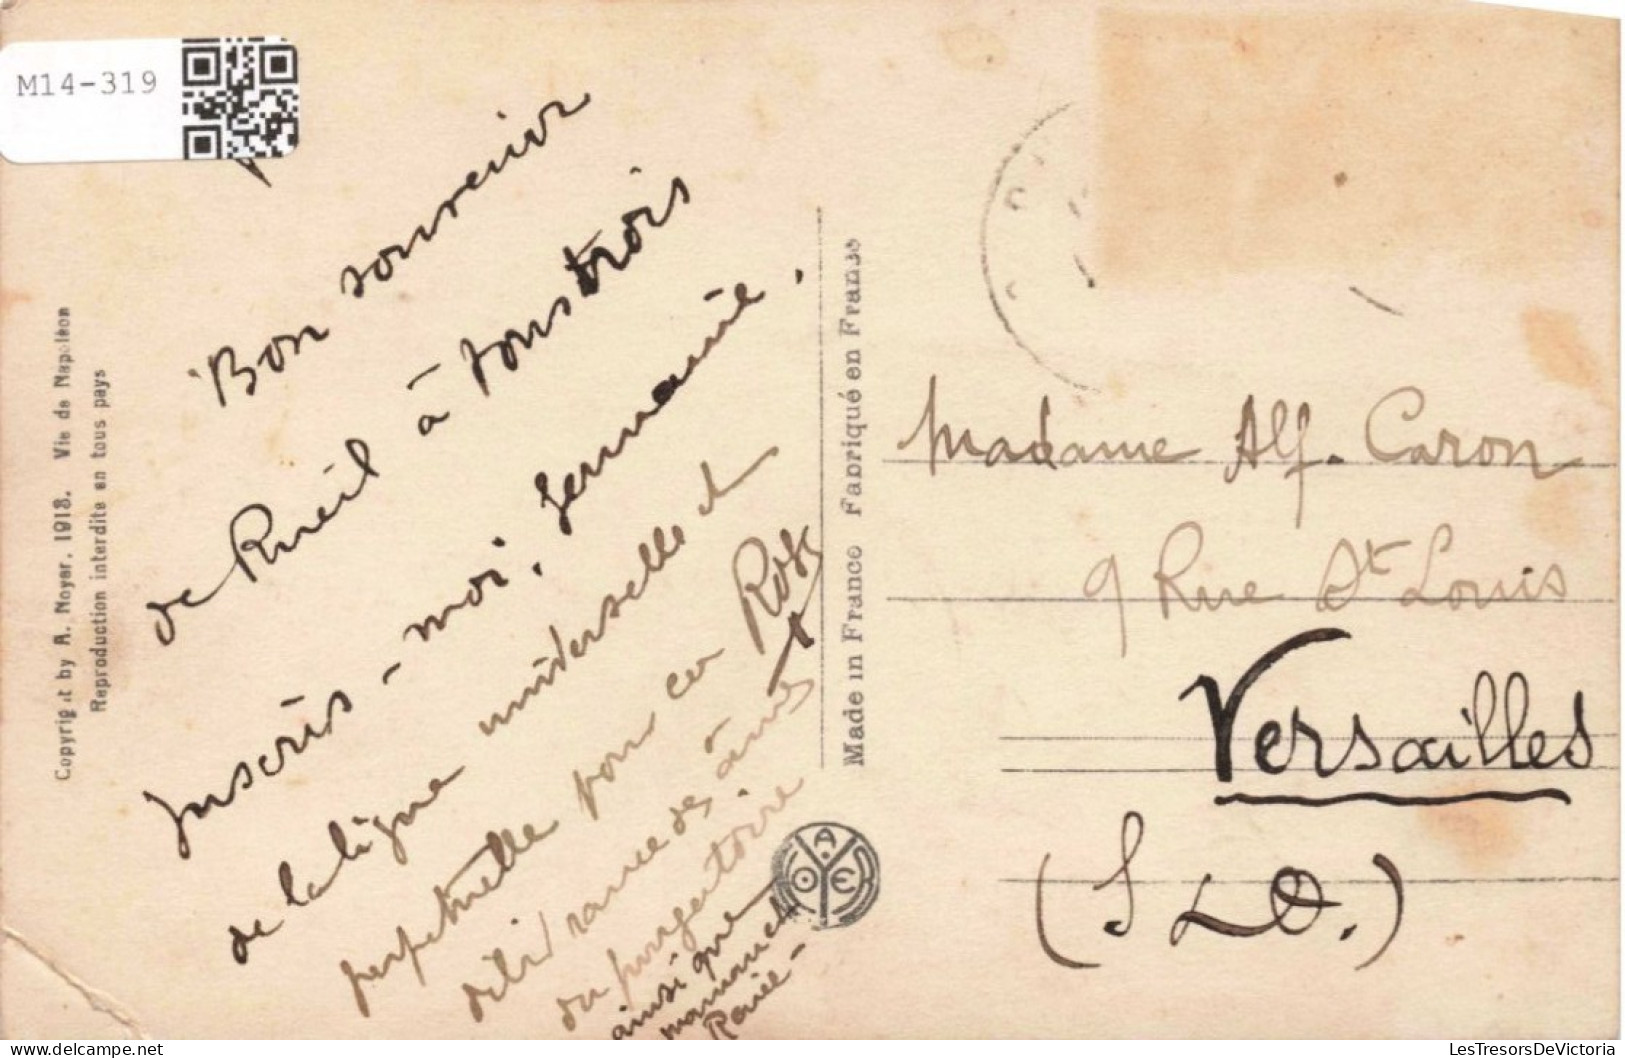 M14-319
Copyrig t by A. Noyer. 1918. Vie de Napoléon
Reproduction interdite en tous pays
Bon souvenir
de Rueil à tous trois
Inscris-moi, Germaine.
de la ligne universelle et
perpétuelle pour ce
délivrance des âmes
du purgatoire
ainsi que
maman et
Renée -
Made in France Fabriqué en France
A. O E
Madame Alf. Caron
9 Rue St Louis
Versailles
(S & O.)
LesTresorsDeVictoria
www.delcampe.net